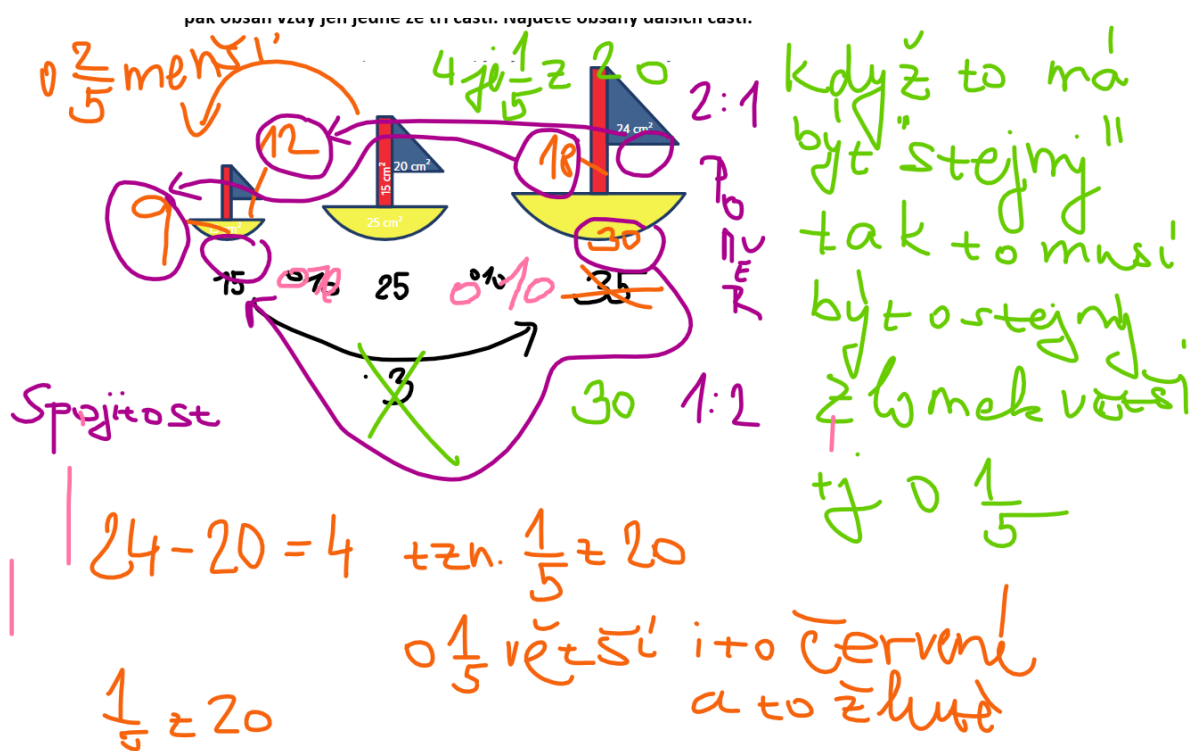 pak obsah vždy jen jedné ze tří částí. Najděte obsahy dalších částí.
o 2/5 menší
4 je 1/5 z 20
2:1
když to má
být "stejný"
tak to musí
být o stejný
zlomek větší
tj o 1/5
12
9
15 cm²
20 cm²
25 cm²
18
24 cm²
30
POMĚR
15
o 10
25
o 10
35
.3
30
1:2
Spojitost
24-20=4 tzn. 1/5 z 20
o 1/5 větší i to červené
a to žluté
1/5 z 20